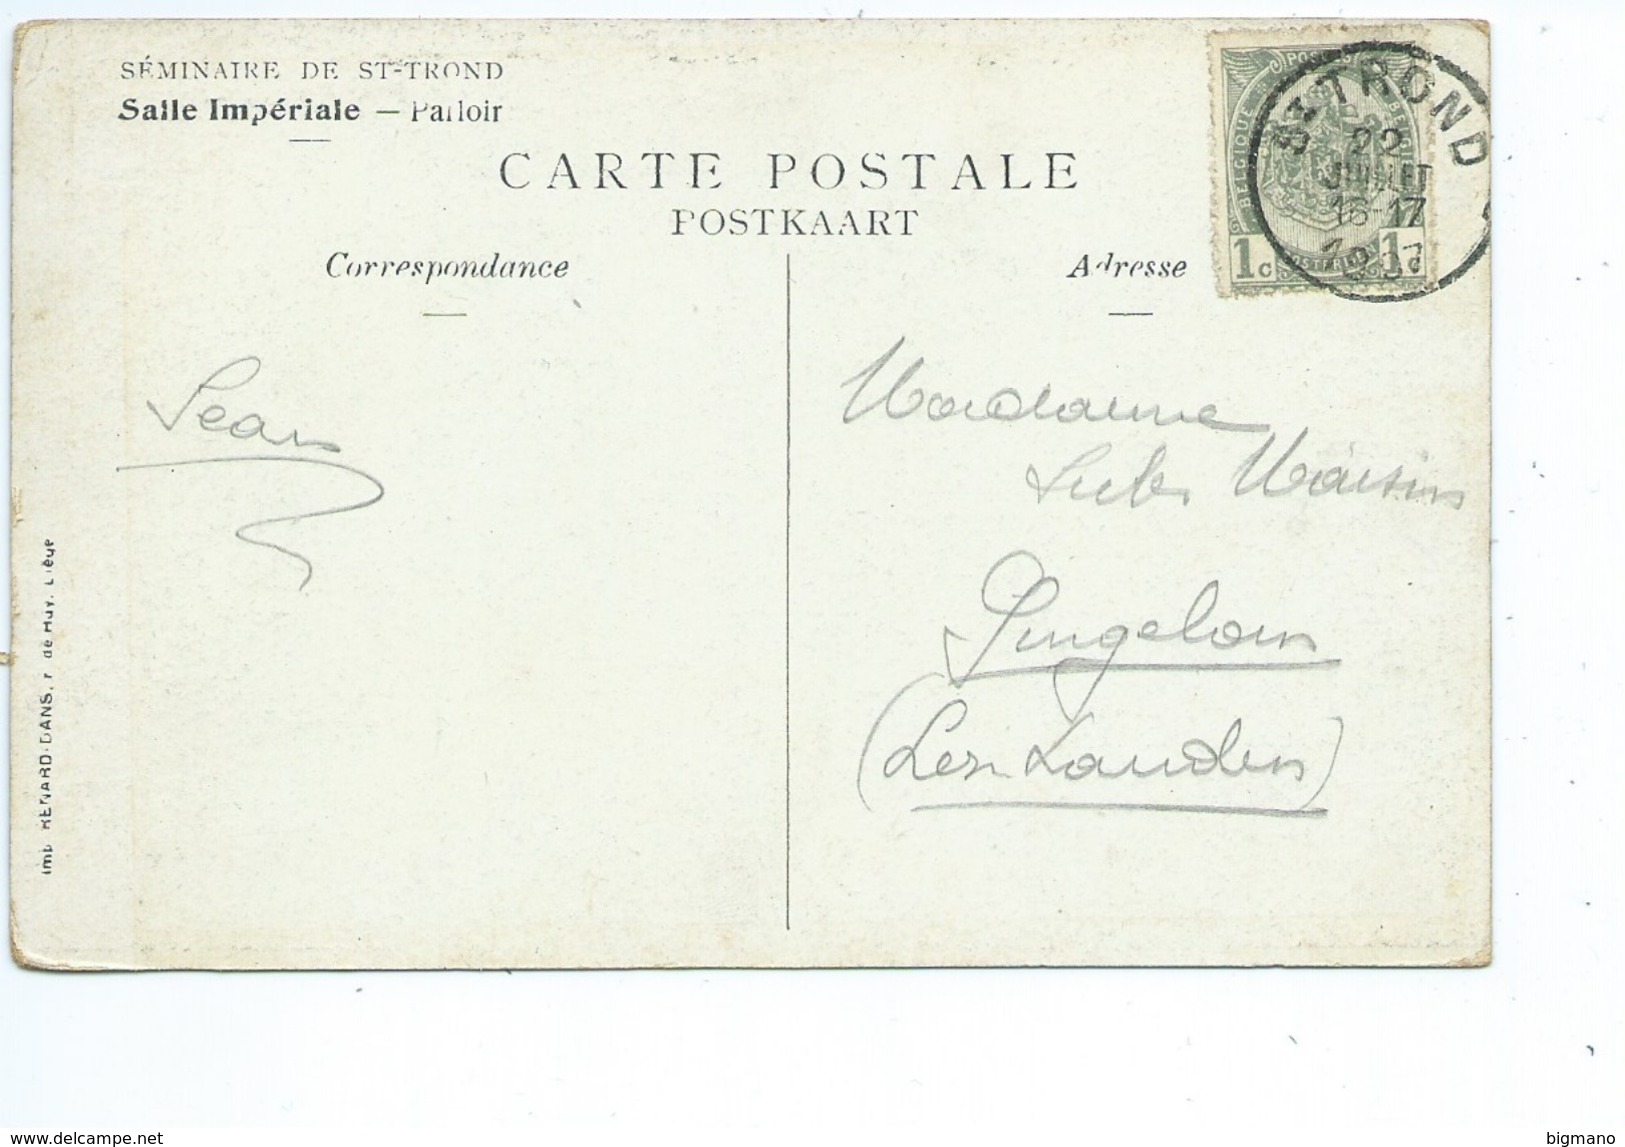 SÉMINAIRE DE ST-TROND
Salle Impériale — Parloir
CARTE POSTALE
POSTKAART
Correspondance
Adresse
BELGIQUE
BELGIË
1c
1c
ST TROND
22
JUILLET
16-17
Jean
Madame
Pingelom
(Lez Landen)
Imp. RENARD-DANS, r. de Huy, Liége
www.delcampe.net
bigmano